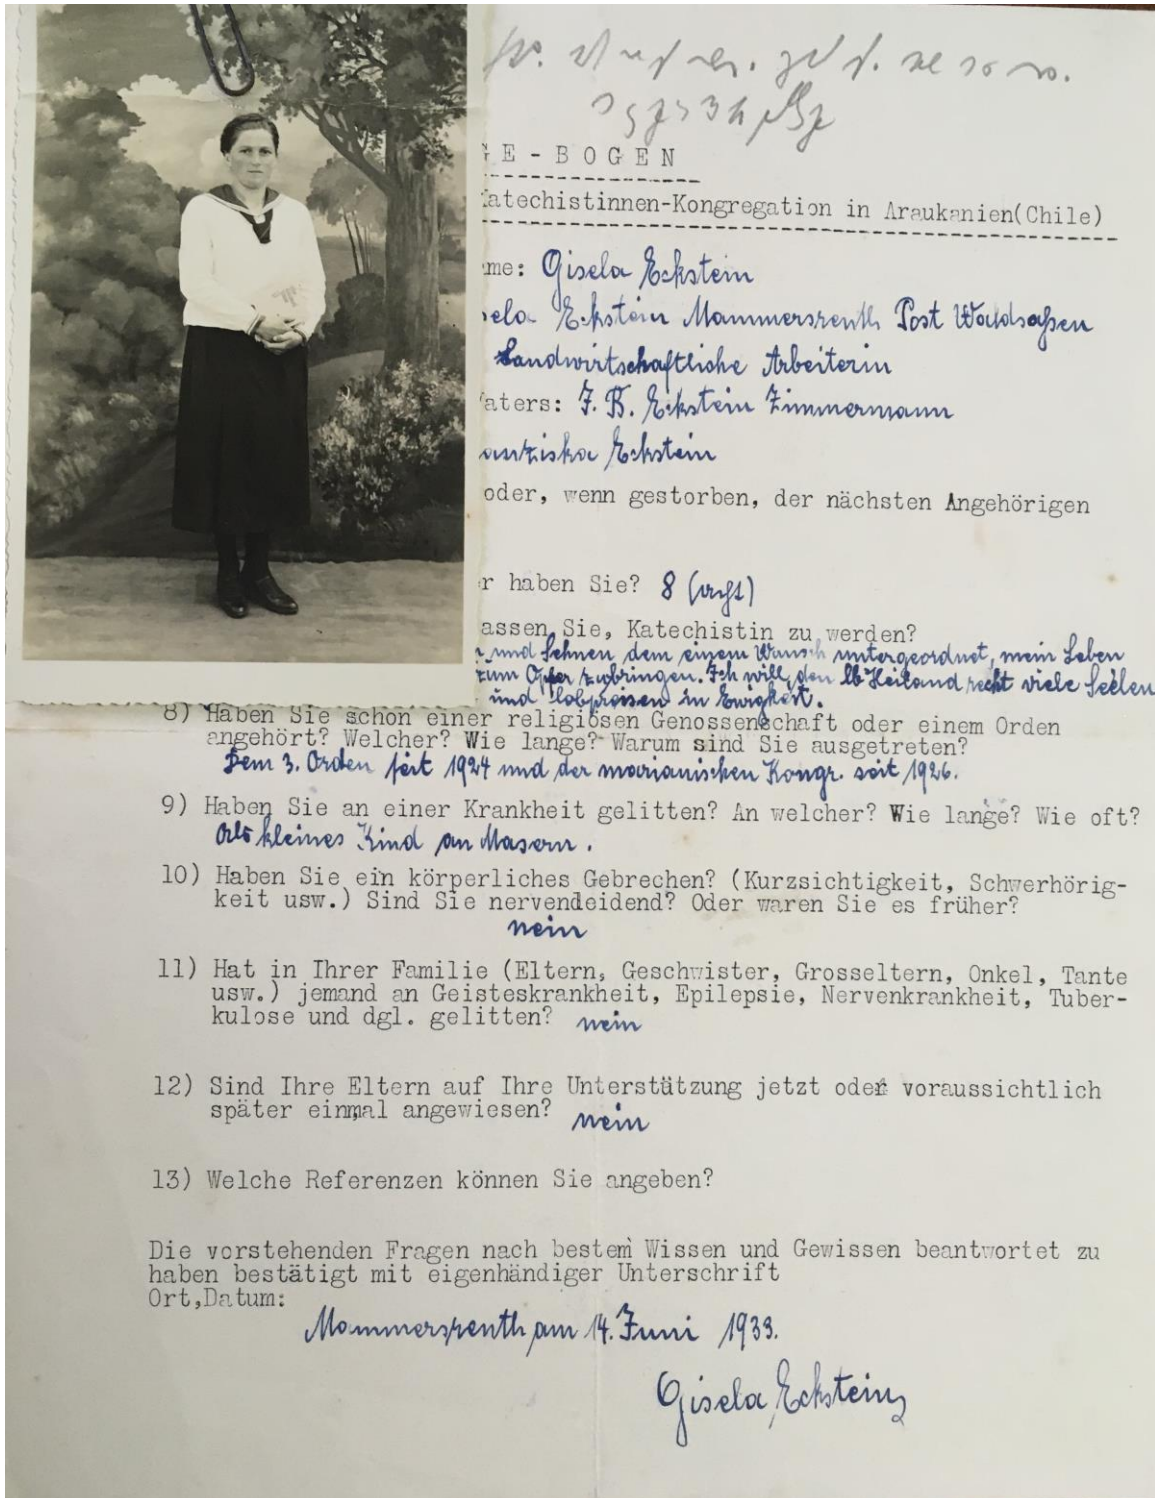 GE-BOGEN
Katechistinnen-Kongregation in Araukanien(Chile)
me: Gisela Eckstein
ela Eckstein Mammersreuth Post Waldsaßen
Landwirtschaftliche Arbeiterin
Vaters: J. B. Eckstein Zimmermann
anziska Eckstein
oder, wenn gestorben, der nächsten Angehörigen
r haben Sie? 8 (acht)
assen Sie, Katechistin zu werden?
und Sehnen dem einem Wunsch untergeordnet, mein Leben
zum Opfer zu bringen. Ich will, den lb Heiland recht viele Seelen
und lobpreisen in Ewigkeit.
8) Haben Sie schon einer religiösen Genossenschaft oder einem Orden
angehört? Welcher? Wie lange? Warum sind Sie ausgetreten?
Dem 3. Orden seit 1924 und der marianischen Kongr. seit 1926.
9) Haben Sie an einer Krankheit gelitten? An welcher? Wie lange? Wie oft?
Als kleines Kind an Masern.
10) Haben Sie ein körperliches Gebrechen? (Kurzsichtigkeit, Schwerhörig-
keit usw.) Sind Sie nervendeidend? Oder waren Sie es früher?
nein
11) Hat in Ihrer Familie (Eltern, Geschwister, Grosseltern, Onkel, Tante
usw.) jemand an Geisteskrankheit, Epilepsie, Nervenkrankheit, Tuber-
kulose und dgl. gelitten? nein
12) Sind Ihre Eltern auf Ihre Unterstützung jetzt oder voraussichtlich
später einmal angewiesen? nein
13) Welche Referenzen können Sie angeben?
Die vorstehenden Fragen nach bestem Wissen und Gewissen beantwortet zu
haben bestätigt mit eigenhändiger Unterschrift
Ort,Datum:
Mammersreuth, am 14. Juni 1933.
Gisela Eckstein